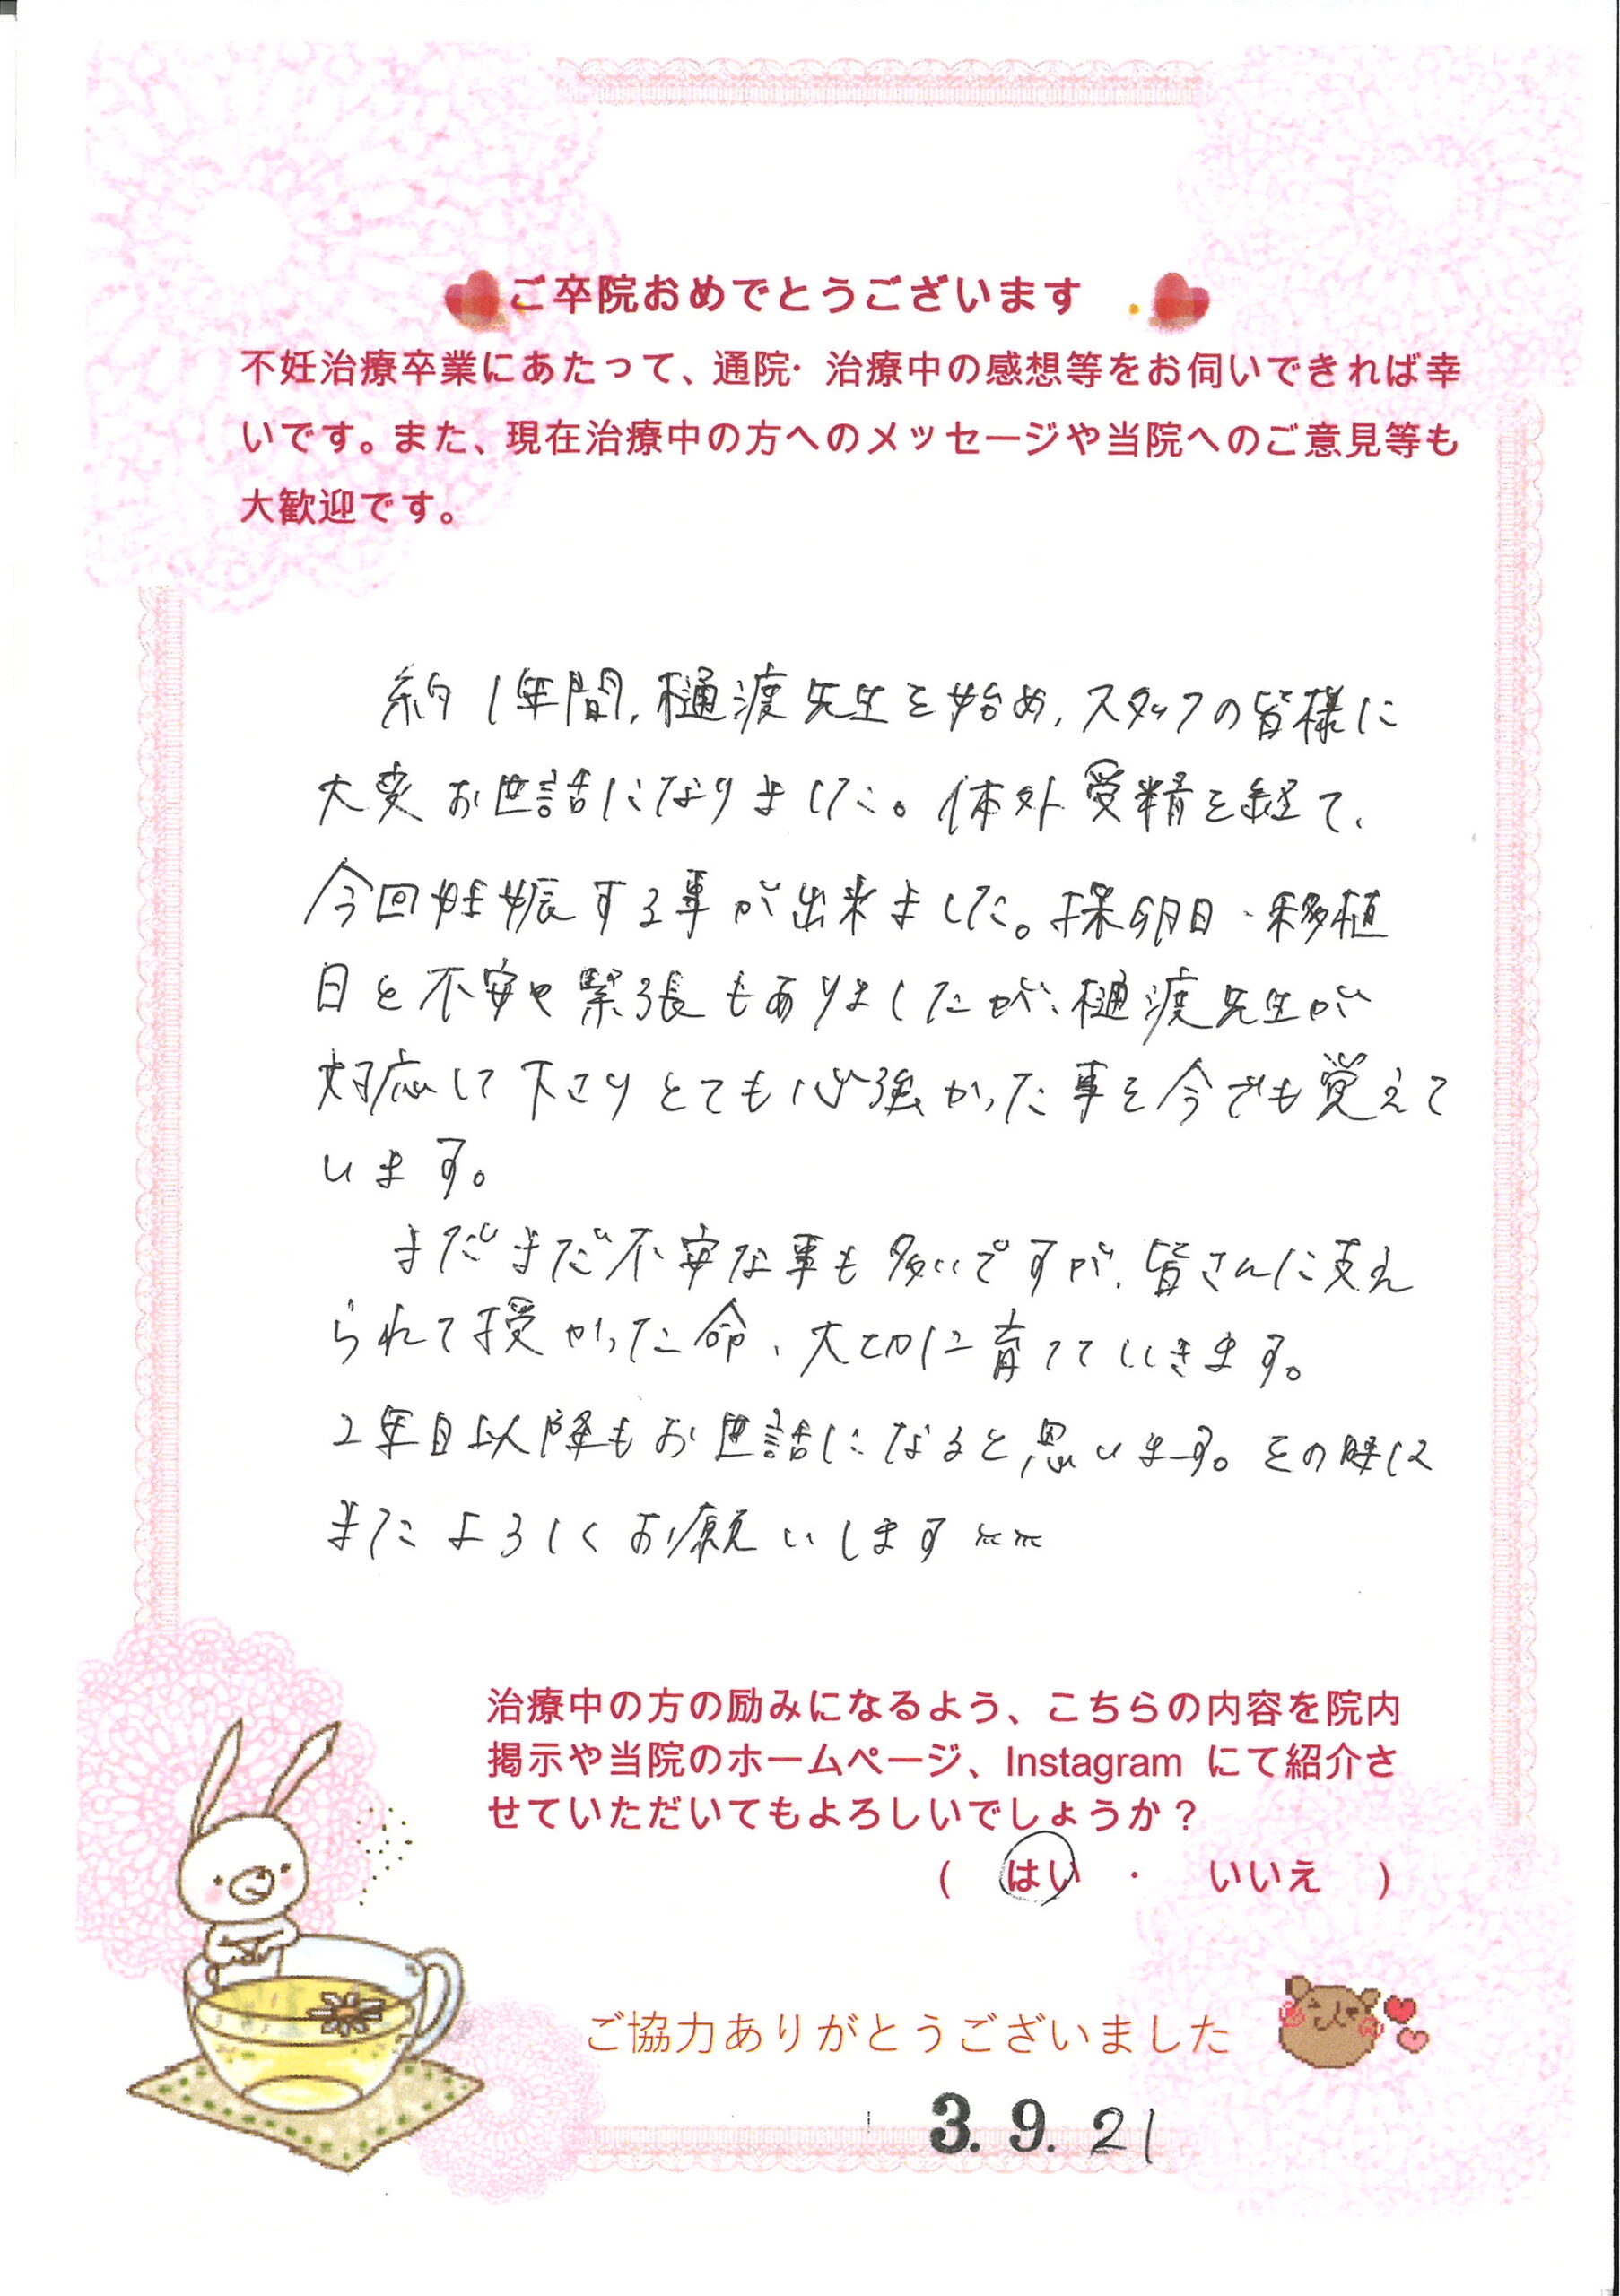 ご卒院おめでとうございます
不妊治療卒業にあたって、通院・治療中の感想等をお伺いできれば幸
いです。また、現在治療中の方へのメッセージや当院へのご意見等も
大歓迎です。
約1年間、樋渡先生を始め、スタッフの皆様に
大変お世話になりました。体外受精を経て、
今回妊娠する事が出来ました。採卵日・移植
日と不安や緊張もありましたが、樋渡先生が
対応して下さりとても心強かった事を今でも覚えて
います。
まだまだ不安な事も多いですが、皆さんに支え
られて授かった命、大切に育てていきます。
2年目以降もお世話になると思います。その時は
またよろしくお願いします
治療中の方の励みになるよう、こちらの内容を院内
掲示や当院のホームページ、Instagram にて紹介さ
せていただいてもよろしいでしょうか？
( はい ・ いいえ )
ご協力ありがとうございました
3. 9. 21